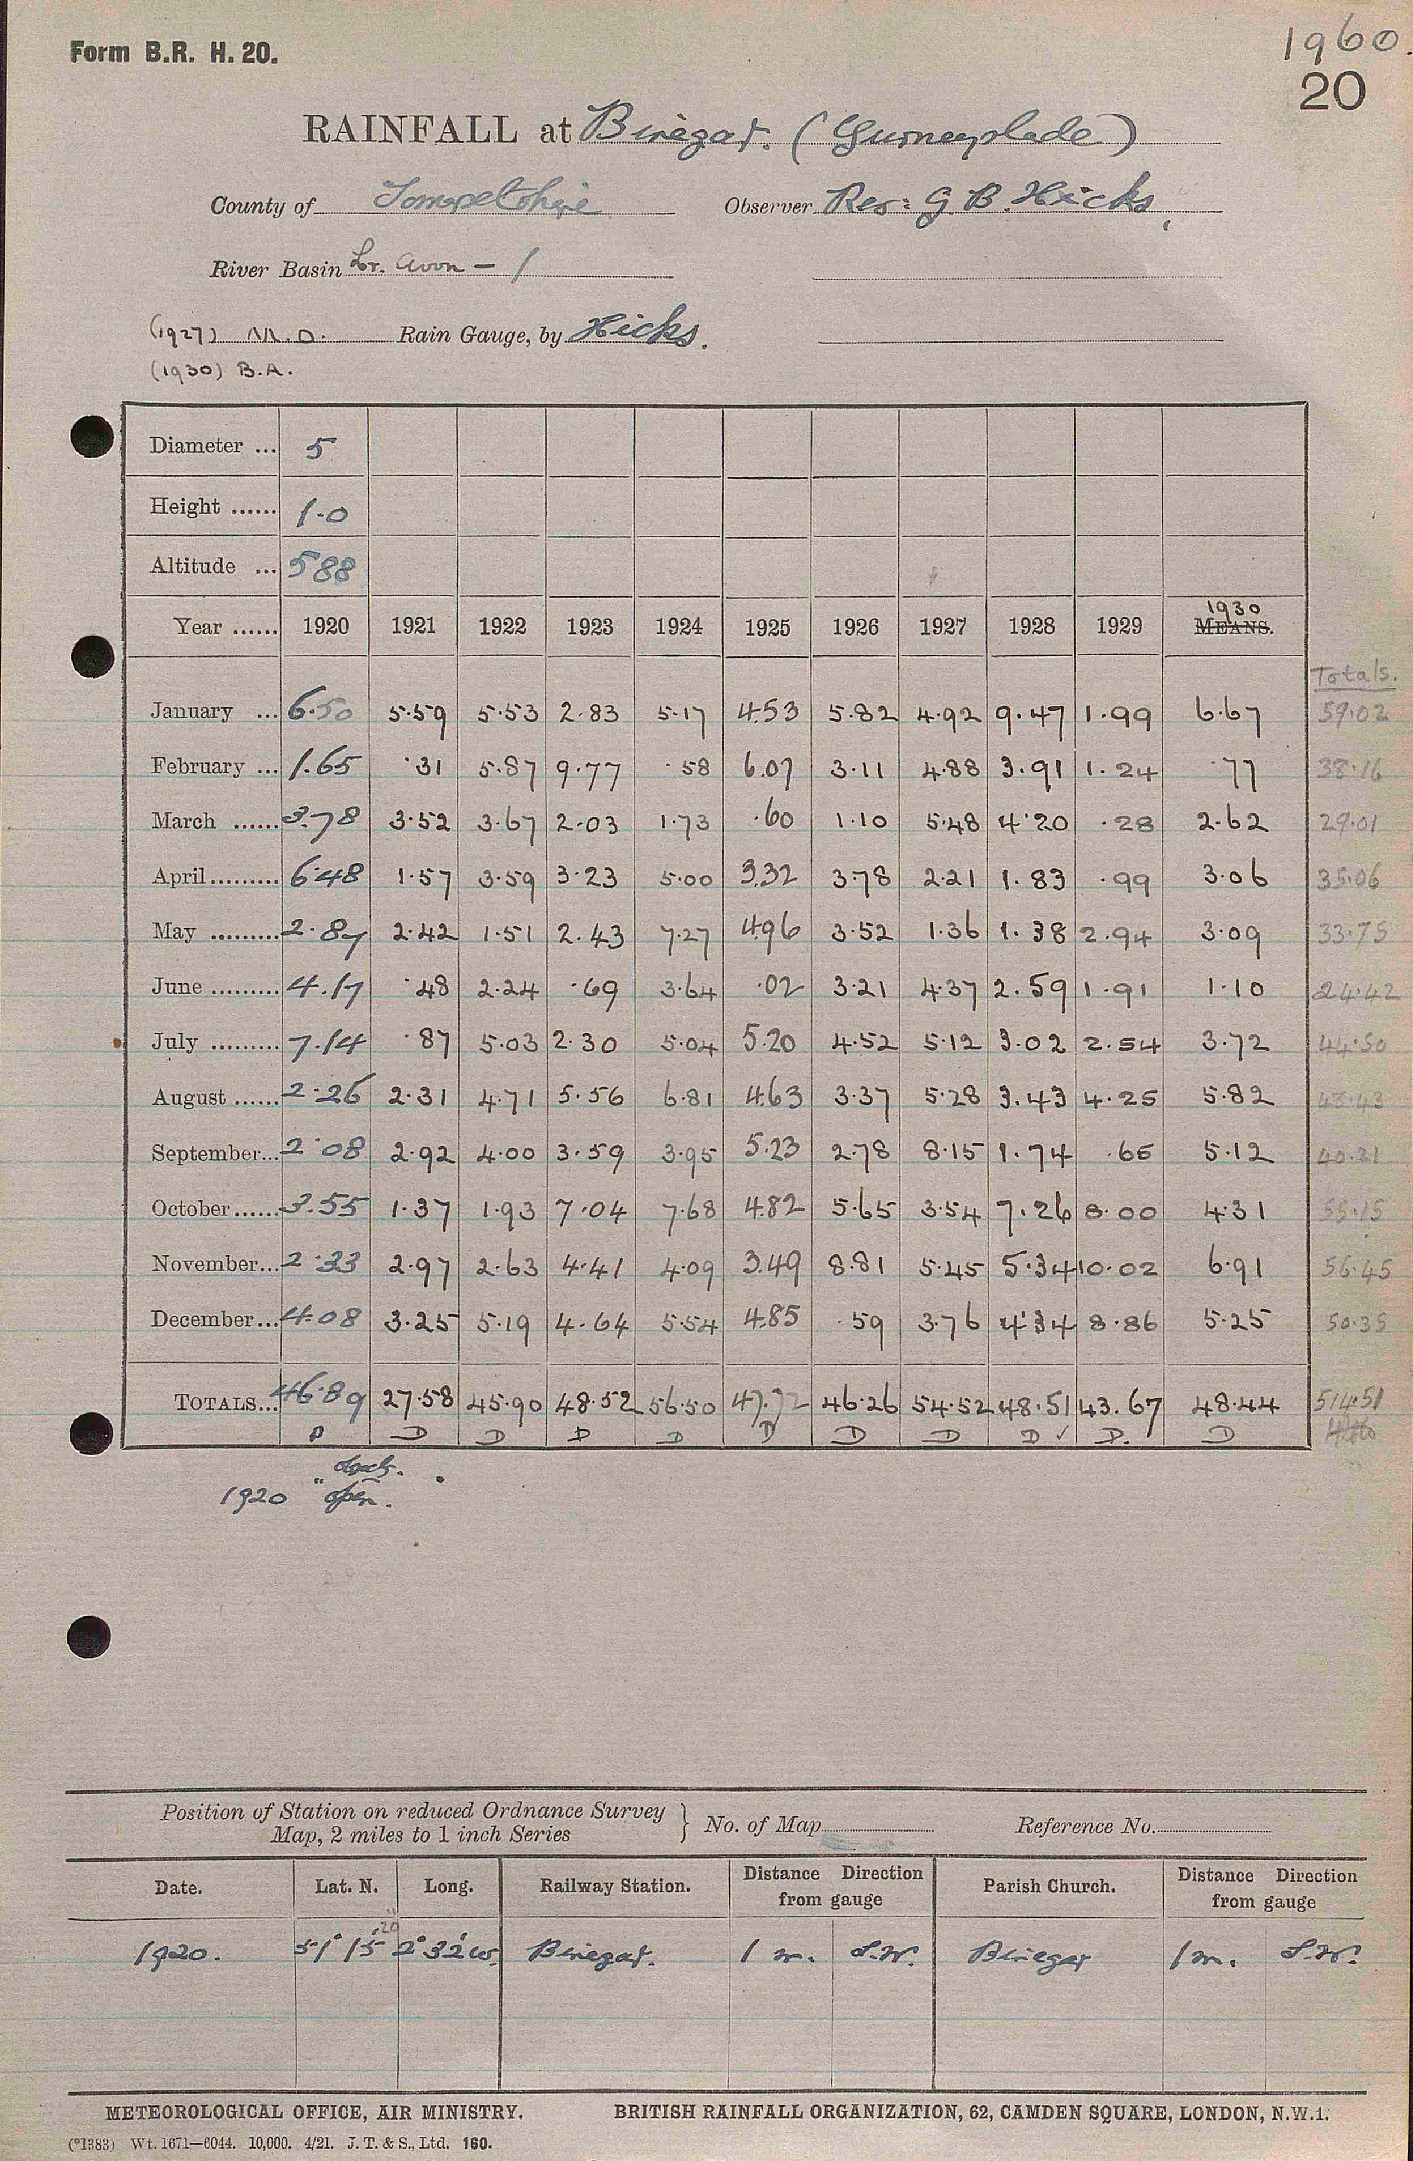 1960.
Form B.R. H. 20.
20
RAINFALL at Binegar. (Gurneyslade)
County of Somersetshire Observer Rev: G B. Hicks,
River Basin Lr. Avon - 1
(1927) M.O. Rain Gauge, by Hicks.
(1930) B.A.
Diameter ... 5
Height ...... 1.0
Altitude ... 588
Year ...... 1920 1921 1922 1923 1924 1925 1926 1927 1928 1929 1930 MEANS.
Totals.
January ... 6.50 5.59 5.53 2.83 5.17 4.53 5.82 4.92 9.47 1.99 6.67 59.02
February ... 1.65 .31 5.87 9.77 .58 6.07 3.11 4.88 3.91 1.24 .77 38.16
March ...... 3.78 3.52 3.67 2.03 1.73 .60 1.10 5.48 4.20 .28 2.62 29.01
April ......... 6.48 1.57 3.59 3.23 5.00 3.32 3.78 2.21 1.83 .99 3.06 35.06
May ......... 2.87 2.42 1.51 2.43 7.27 4.96 3.52 1.36 1.38 2.94 3.09 33.75
June ......... 4.17 .48 2.24 .69 3.64 .02 3.21 4.37 2.59 1.91 1.10 24.42
July ......... 7.14 .87 5.03 2.30 5.04 5.20 4.52 5.12 3.02 2.54 3.72 44.50
August ...... 2.26 2.31 4.71 5.56 6.81 4.63 3.37 5.28 3.43 4.25 5.82 48.43
September... 2.08 2.92 4.00 3.59 3.95 5.23 2.78 8.15 1.74 .65 5.12 40.21
October ...... 3.55 1.37 1.93 7.04 7.68 4.82 5.65 3.54 7.26 8.00 4.31 55.15
November... 2.33 2.97 2.63 4.41 4.09 3.49 8.81 5.45 5.34 10.02 6.91 56.45
December ... 4.08 3.25 5.19 4.64 5.54 4.85 .59 3.76 4.34 8.86 5.25 50.35
TOTALS... 46.89 27.58 45.90 48.52 56.50 47.72 46.26 54.52 48.51 43.67 48.44 514.51
D D D D D D D D D ✓ D. D
1920 "open.
Position of Station on reduced Ordnance Survey
Map, 2 miles to 1 inch Series } No. of Map Reference No.
Date. Lat. N. Long. Railway Station. Distance Direction from gauge Parish Church. Distance Direction from gauge
1920. 51° 15' 20" 2° 32' W. Binegar. 1 m. S.W. Binegar 1 m. S.W.
METEOROLOGICAL OFFICE, AIR MINISTRY. BRITISH RAINFALL ORGANIZATION, 62, CAMDEN SQUARE, LONDON, N.W.1.
(*1383) Wt. 1671—6044. 10,000. 4/21. J. T. & S., Ltd. 160.